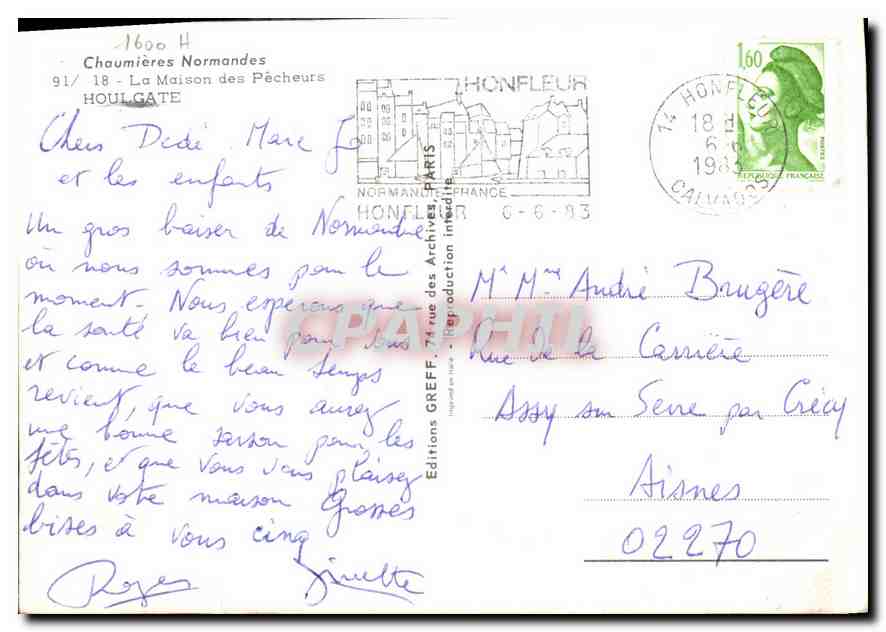 1600 H
Chaumières Normandes
91/ 18 - La Maison des Pêcheurs
HOULGATE
Chers Dédé Marc Jo
et les enfants
Un gros baiser de Normandie
où nous sommes pour le
moment. Nous esperons que
la santé va bien pour tous
et comme le beau temps
revient, que vous aurez
une bonne saison pour les
fêtes, et que vous vous plaisez
dans votre maison Grosses
bises à vous cinq
Roger Ginette
HONFLEUR
NORMANDIE FRANCE
HONFLEUR 6-6-83
14 HONFLEUR
18 H
6-6
1983
CALVADOS
1,60
REPUBLIQUE FRANÇAISE
POSTES
Editions GREFF, 74 rue des Archives, PARIS
Imprimé en Italie - Reproduction interdite
CPAPHIL
Mr Mme André Brugère
Rue de la Carrière
Assy sur Serre par Crécy
Aisnes
02270